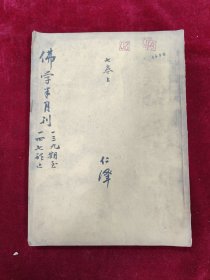 佛学半月刊
一三九期至
一四七期止
七卷上
仁泽